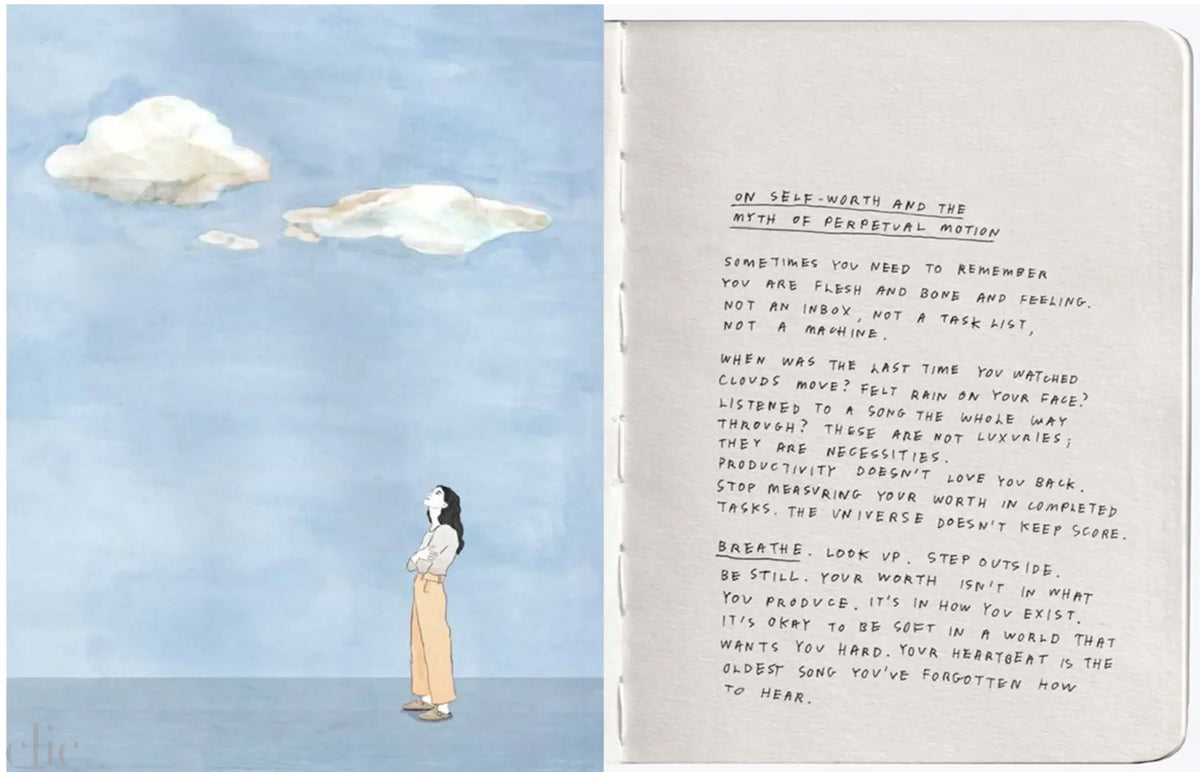 ON SELF-WORTH AND THE
MYTH OF PERPETUAL MOTION
SOMETIMES YOU NEED TO REMEMBER
YOU ARE FLESH AND BONE AND FEELING.
NOT AN INBOX, NOT A TASK LIST,
NOT A MACHINE.
WHEN WAS THE LAST TIME YOU WATCHED
CLOUDS MOVE? FELT RAIN ON YOUR FACE?
LISTENED TO A SONG THE WHOLE WAY
THROUGH? THESE ARE NOT LUXURIES;
THEY ARE NECESSITIES.
PRODUCTIVITY DOESN'T LOVE YOU BACK.
STOP MEASURING YOUR WORTH IN COMPLETED
TASKS. THE UNIVERSE DOESN'T KEEP SCORE.
BREATHE. LOOK UP. STEP OUTSIDE.
BE STILL. YOUR WORTH ISN'T IN WHAT
YOU PRODUCE. IT'S IN HOW YOU EXIST.
IT'S OKAY TO BE SOFT IN A WORLD THAT
WANTS YOU HARD. YOUR HEARTBEAT IS THE
OLDEST SONG YOU'VE FORGOTTEN HOW
TO HEAR.
clic